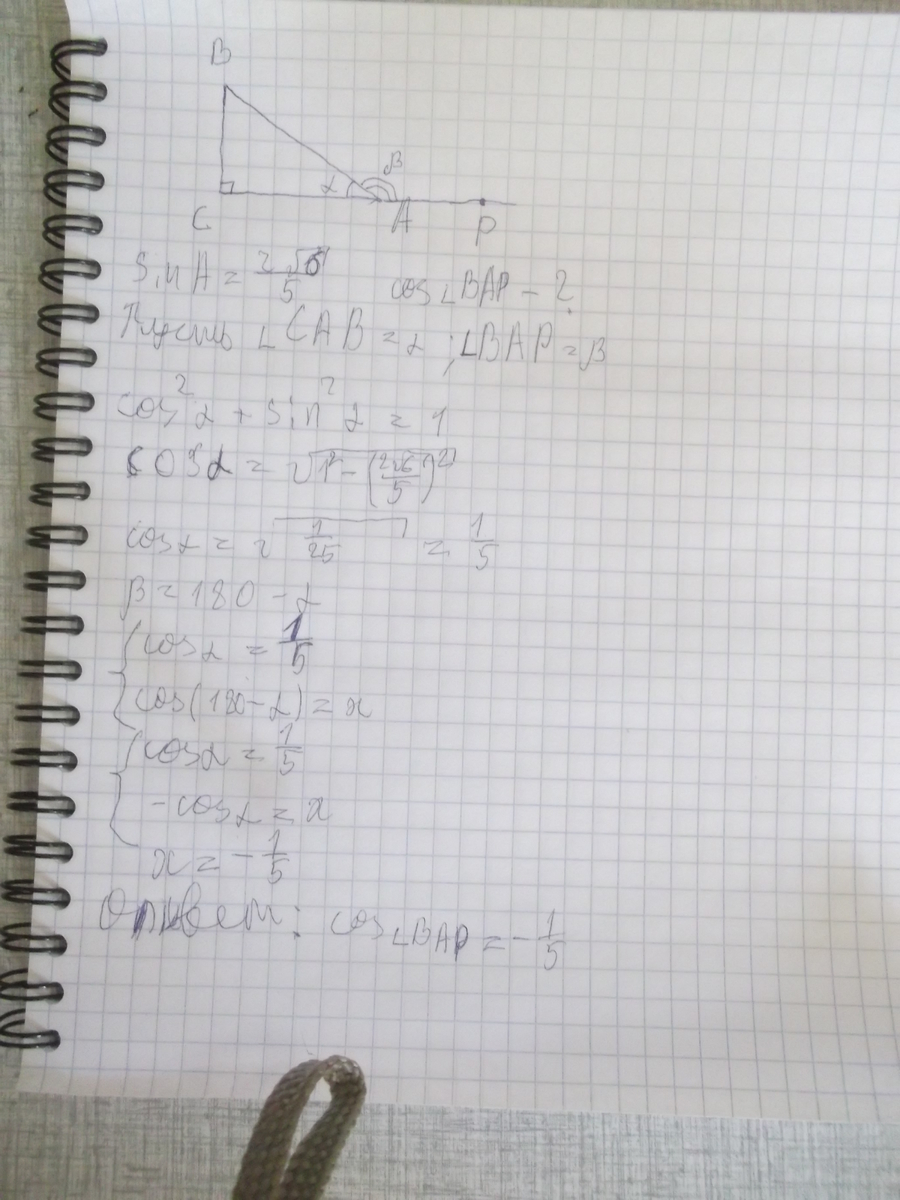 B
α β
C A P
sin A = 2√6/5 cos∠BAP - ?
Пусть ∠CAB = α ; ∠BAP = β
cos²α + sin²α = 1
cosα = √1² - (2√6/5)²
cosα = √1/25 = 1/5
β = 180 - α
{ cosα = 1/5
cos(180 - α) = x
{ cosα = 1/5
-cosα = x
x = -1/5
Ответ: cos∠BAP = -1/5